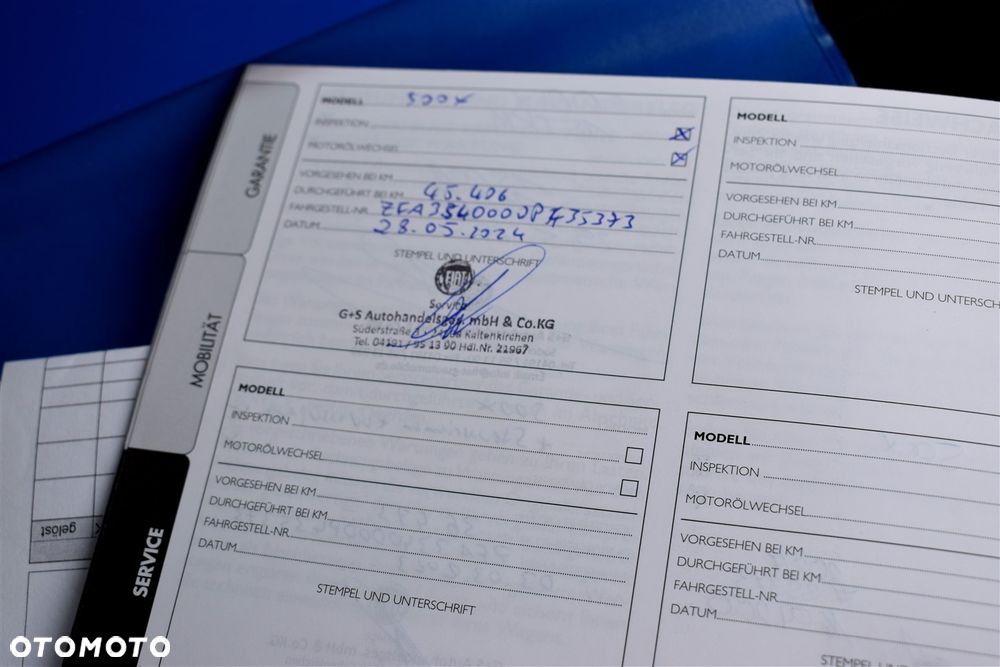 GARANTIE
MOBILITÄT
SERVICE
MODELL 500X
INSPEKTION
MOTORÖLWECHSEL
VORGESEHEN BEI KM
DURCHGEFÜHRT BEI KM 45.406
FAHRGESTELL-NR.
DATUM 28.05.2024
STEMPEL UND UNTERSCHRIFT
FIAT
Service
G+S Autohandelsges. mbH & Co.KG
Süderstraße Kaltenkirchen
Tel. 04191 / 95 13 90 Hdl.Nr. 21967
MODELL
INSPEKTION
MOTORÖLWECHSEL
VORGESEHEN BEI KM
DURCHGEFÜHRT BEI KM
FAHRGESTELL-NR.
DATUM
STEMPEL UND UNTERSCH
MODELL
INSPEKTION
MOTORÖLWECHSEL
VORGESEHEN BEI KM
DURCHGEFÜHRT BEI KM
FAHRGESTELL-NR.
DATUM
STEMPEL UND UNTERSCHRIFT
MODELL
INSPEKTION
MOTORÖLWECHSEL
VORGESEHEN BEI KM
DURCHGEFÜHRT BEI KM
FAHRGESTELL-NR.
DATUM
STEMPEL UN
gelöst
OTOMOTO